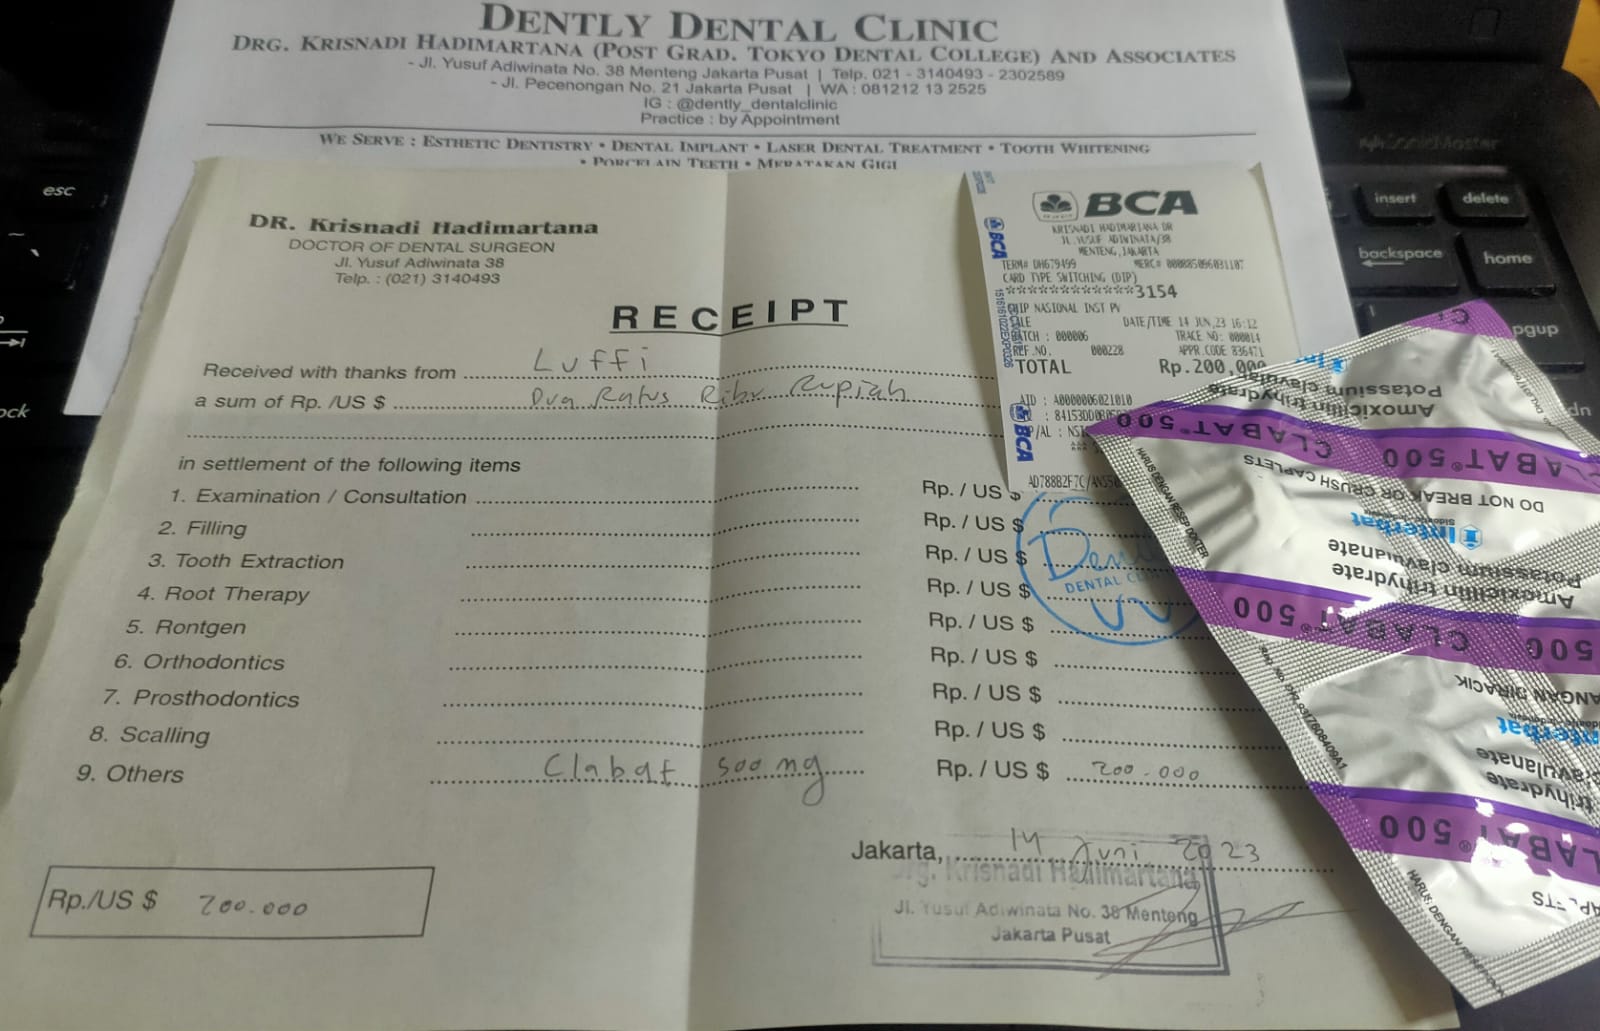 DENTLY DENTAL CLINIC
DRG. KRISNADI HADIMARTANA (POST GRAD. TOKYO DENTAL COLLEGE) AND ASSOCIATES
- Jl. Yusuf Adiwinata No. 38 Menteng Jakarta Pusat | Telp. 021 - 3140493 - 2302589
- Jl. Pecenongan No. 21 Jakarta Pusat | WA : 081212 13 2525
IG : @dently_dentalclinic
Practice : by Appointment
WE SERVE : ESTHETIC DENTISTRY • DENTAL IMPLANT • LASER DENTAL TREATMENT • TOOTH WHITENING
• PORCELAIN TEETH • MERATAKAN GIGI
DR. Krisnadi Hadimartana
DOCTOR OF DENTAL SURGEON
Jl. Yusuf Adiwinata 38
Telp. : (021) 3140493
RECEIPT
Received with thanks from Luffi
a sum of Rp. /US $ Dua Ratus Ribu Rupiah
in settlement of the following items
1. Examination / Consultation Rp. / US $
2. Filling Rp. / US $
3. Tooth Extraction Rp. / US $
4. Root Therapy Rp. / US $
5. Rontgen Rp. / US $
6. Orthodontics Rp. / US $
7. Prosthodontics Rp. / US $
8. Scalling Rp. / US $
9. Others Clabat 500 mg Rp. / US $ 200.000
Jakarta, 14 Juni 2023
Rp./US $ 200.000
Drg. Krisnadi Hadimartana
Jl. Yusuf Adiwinata No. 38 Menteng
Jakarta Pusat
DENTAL
BCA
KRISNADI HADIMARTANA DR
JL.YUSUF ADIWINATA/38
MENTENG, JAKARTA
TERM# DH679499 MERC# 000885096031107
CARD TYPE SWITCHING (DIP)
***********3154
CHIP NASIONAL INST PV
SALE DATE/TIME 14 JUN,23 16:12
BATCH : 000006 TRACE NO: 000014
REF.NO. 000228 APPR.CODE 836471
TOTAL Rp.200,000
AID : A0000006021010
BCA
BCA
Amoxicillin trihydrate
Potassium clavulanate
CLABAT® 500
CLABAT® 500
DO NOT BREAK OR CRUSH CAPLETS
Interbat
HARUS DENGAN RESEP DOKTER
Amoxicillin trihydrate
Potassium clavulanate
CLABAT® 500
500
Interbat
trihydrate
CLABAT® 500
esc
insert
delete
backspace
home
pgup
dn
ock